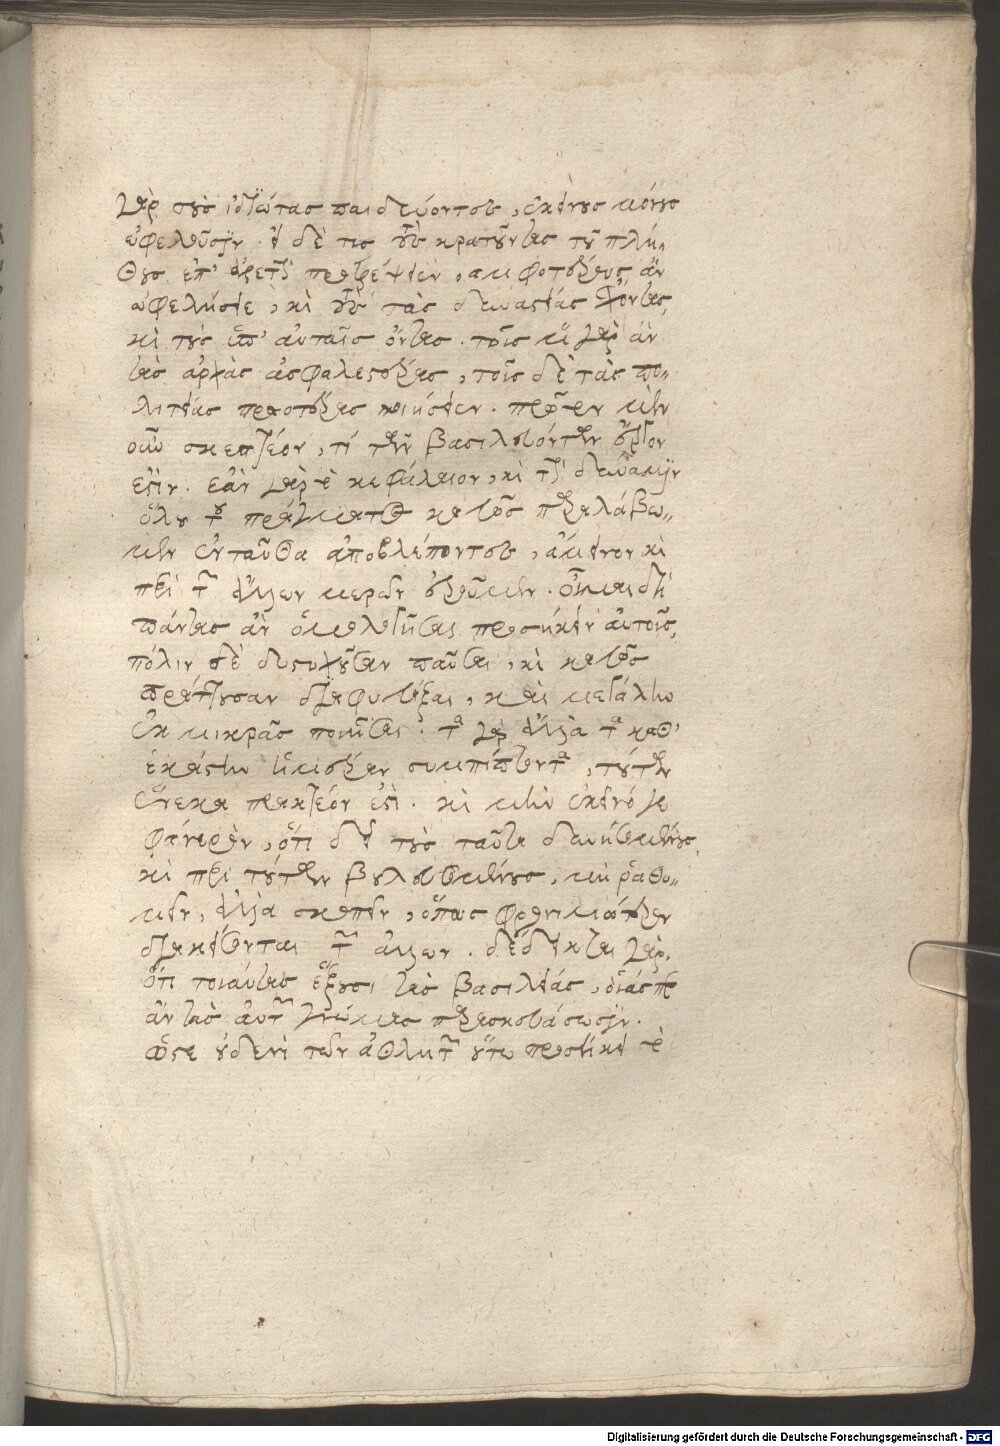 γὰρ τοὺς ἰδιώτας παιδεύοντες, ἐκείνους μόνους
ὠφελοῦσιν. εἰ δέ τις τοὺς κρατοῦντας τοῦ πλή-
θους ἐπ' ἀρετὴν προτρέψειεν, ἀμφοτέρους ἂν
ὠφελήσειε, καὶ τοὺς τὰς δυναστείας ἔχοντας,
καὶ τοὺς ὑπ' αὐταῖς ὄντας. τοῖς μὲν γὰρ ἂν
τὰς ἀρχὰς ἀσφαλεστέρας, τοῖς δὲ τὰς πο-
λιτείας πραοτέρας ποιήσειεν. πρῶτον μὲν
οὖν σκεπτέον, τί τῶν βασιλευόντων ἔργον
ἐστίν. ἐὰν γὰρ τὸ κεφάλαιον, καὶ τὴν δύναμιν
ὅλου τοῦ πράγματος καλῶς περιλάβω-
μεν ἐνταῦθα ἀποβλέποντες, ἄμεινον καὶ
περὶ τῶν ἄλλων μερῶν ἐροῦμεν. οἶμαι δὴ
πάντας ἂν ὁμολογῆσαι προσήκειν αὐτοῖς,
πόλιν τε δυστυχοῦσαν παῦσαι, καὶ καλῶς
πράττουσαν διαφυλάξαι, καὶ μεγάλην
ἐκ μικρᾶς ποιῆσαι. τὰ γὰρ ἄλλα τὰ καθ'
ἑκάστην ἡμέραν συμπίπτοντα, τούτων
ἕνεκα πρακτέον ἐστί. καὶ μὴν ἐκεῖνό γε
φανερὸν, ὅτι δεῖ τοὺς ταῦτα δυνησομένους,
καὶ περὶ τούτων βουλευσομένους, μὴ ῥᾳθυ-
μεῖν, ἀλλὰ σκοπεῖν, ὅπως φρονιμώτερον
διακείσονται τῶν ἄλλων. δέδεικται γὰρ,
ὅτι τοιαύτας ἕξουσι τὰς βασιλείας, οἵας περ
ἂν τὰς αὑτῶν γνώμας παρασκευάσωσιν.
ὥστε οὐδενὶ τῶν ἀθλητῶν οὕτω προσήκει τὸ